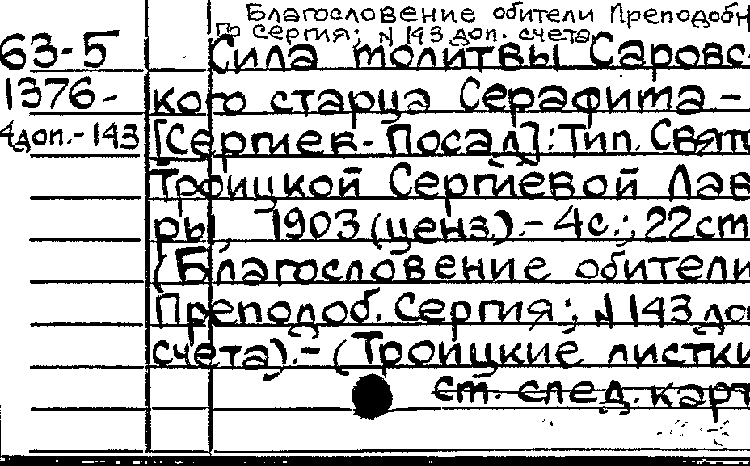 Благословение обители Преподобн
го Сергия; N 143 доп. счета
63-5 Сила молитвы Саровс-
1376- кого старца Серафима -
4доп.-143 [Сергиев-Посад]: Тип. Свято
Троицкой Сергиевой Лав
ры, 1903 (ценз.).- 4с.; 22см
(Благословение обители
Преподоб. Сергия; N 143 доп
счета).- (Троицкие листки
см. след. карт